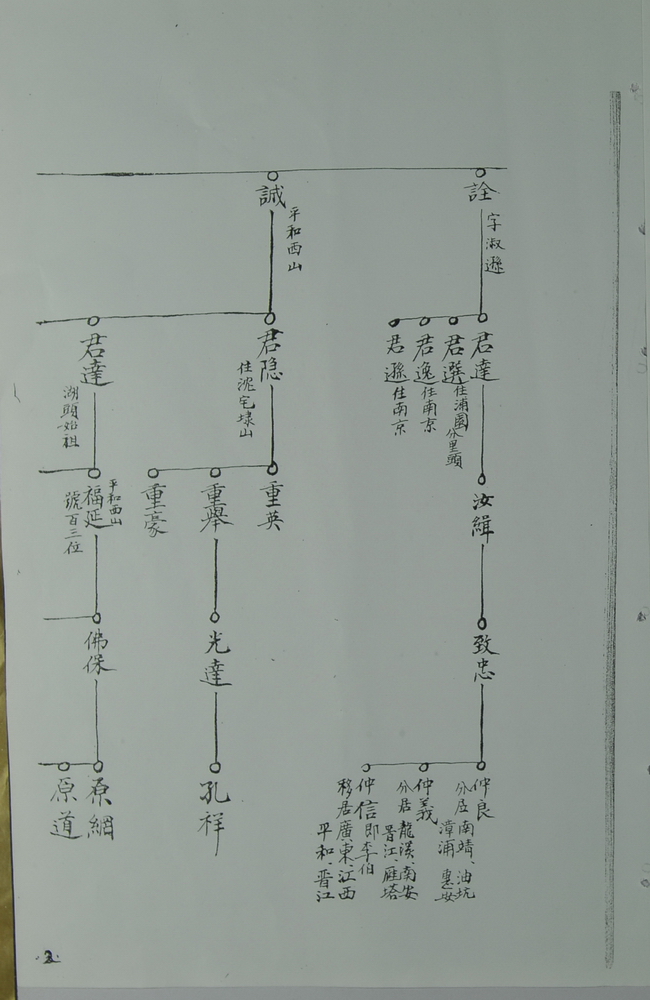 詮
字淑遜
誠
平和西山
君達
君選
住浦園分里頭
君逸
住南京
君遜
住南京
君隐
住泥宅埭山
君達
湖頭始祖
汝緝
重英
重舉
重豪
福延
平和西山
號百三位
致忠
光達
佛保
仲良
分居南靖、油坑
漳浦 惠安
仲義
分居龍溪、南安
晋江、雁塔
仲信即李伯
移居廣東、江西
平和、晋江
孔祥
原綱
原道
·2·